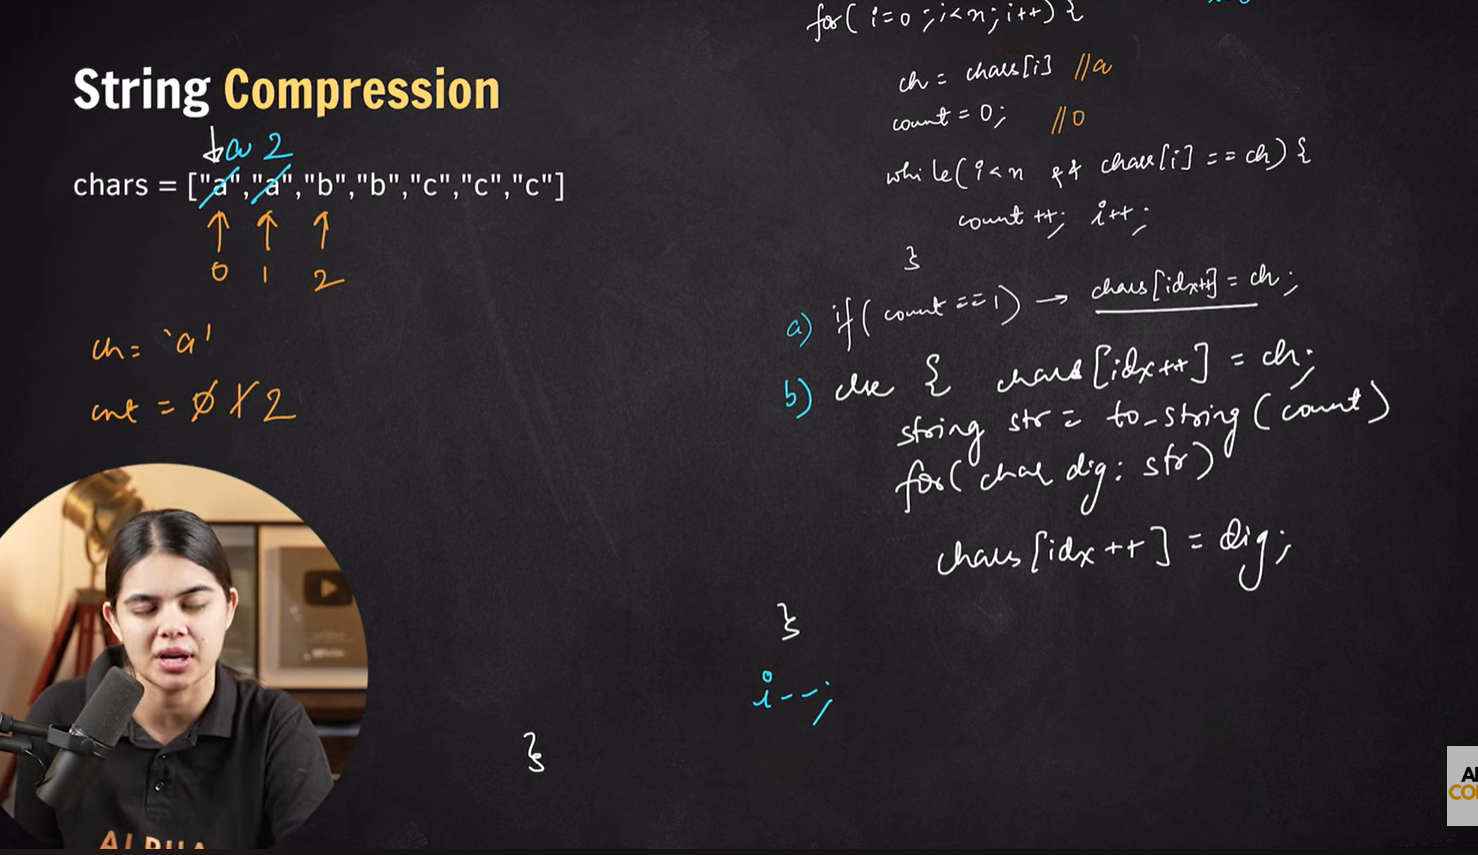 String Compression
a 2
chars = ["a","a","b","b","c","c","c"]
0 1 2
ch = 'a'
cnt = 0 1 2
for( i=0 ; i<n; i++) {
ch = chars[i] //a
count = 0; //0
while( i<n && chars[i] == ch) {
count ++; i++;
}
a) if( count ==1) → chars[idx++] = ch;
b) else { chars [idx++] = ch;
string str = to_string (count)
for( char dig: str)
chars [idx ++] = dig;
}
i--;
}
ALPHA